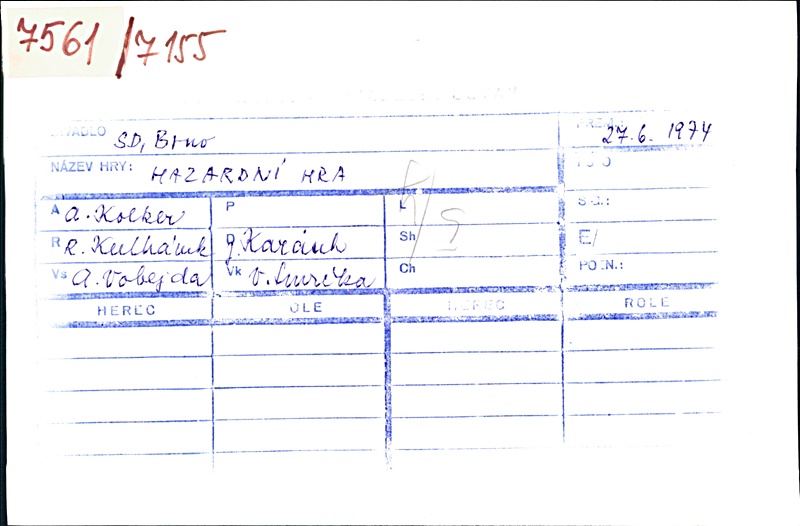 7561/7155
DIVADLO SD, Brno 27.6. 1974
NÁZEV HRY: HAZARDNÍ HRA
A A. Kolker P L
R R. Kulhánek D J. Karásek Sh E/
Vs A. Vobejda Vk V. Smrčka Ch POZN.:
HEREC ROLE HEREC ROLE